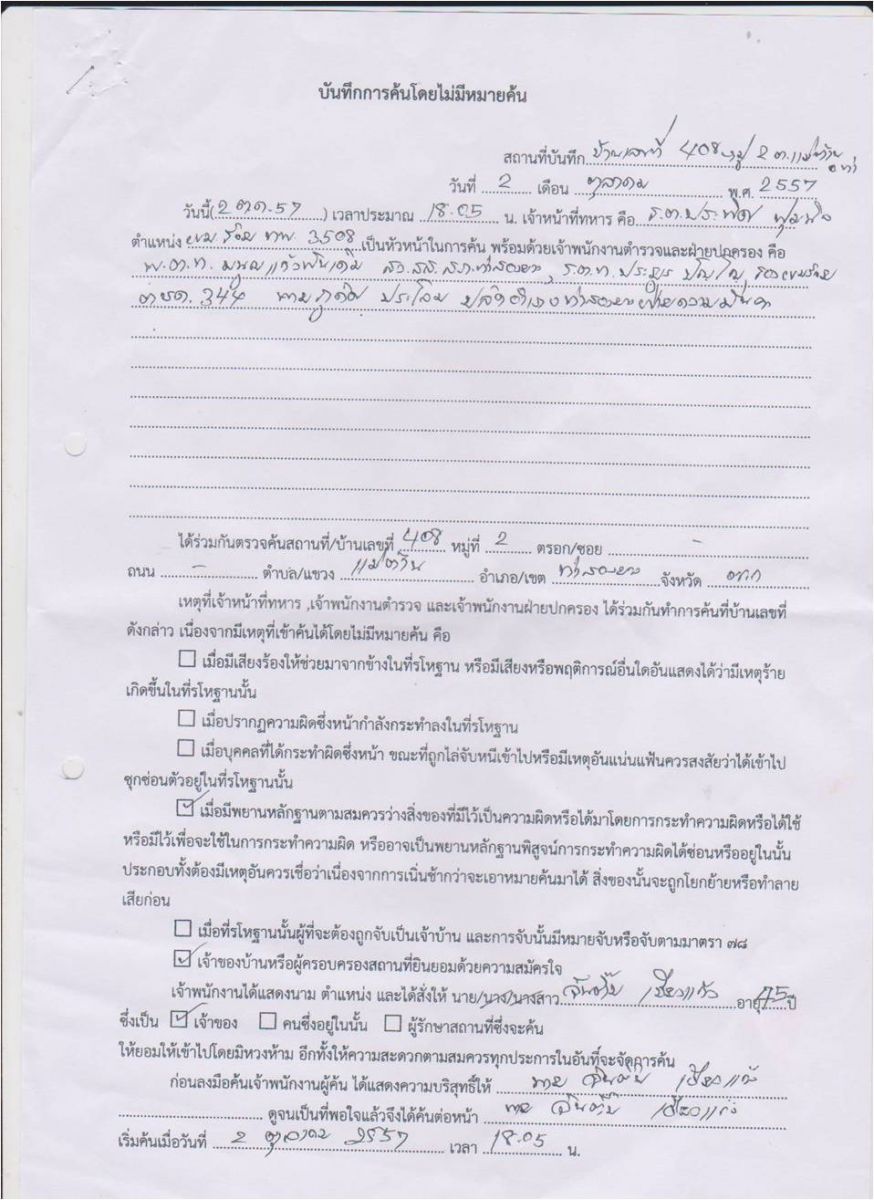 บันทึกการค้นโดยไม่มีหมายค้น
สถานที่บันทึก บ้านเลขที่ 408 หมู่ 2 ต.แม่ต้าน
วันที่ 2 เดือน ตุลาคม พ.ศ. 2557
วันนี้( 2 ต.ค.57 ) เวลาประมาณ 18.05 น. เจ้าหน้าที่ทหาร คือ ร.ต.ประพิศ
ตำแหน่ง ทพ. 3508 เป็นหัวหน้าในการค้น พร้อมด้วยเจ้าพนักงานตำรวจและฝ่ายปกครอง คือ
พ.ต.ท. สว.สส.สภ.ท่าสองยาง, ร.ต.ท.
ตชด. 344 ปลัดอำเภอท่าสองยางฝ่ายความมั่นคง
ได้ร่วมกันตรวจค้นสถานที่/บ้านเลขที่ 408 หมู่ที่ 2 ตรอก/ซอย -
ถนน - ตำบล/แขวง แม่ต้าน อำเภอ/เขต ท่าสองยาง จังหวัด ตาก
เหตุที่เจ้าหน้าที่ทหาร ,เจ้าพนักงานตำรวจ และเจ้าพนักงานฝ่ายปกครอง ได้ร่วมกันทำการค้นที่บ้านเลขที่
ดังกล่าว เนื่องจากมีเหตุที่เข้าค้นได้โดยไม่มีหมายค้น คือ
เมื่อมีเสียงร้องให้ช่วยมาจากข้างในที่รโหฐาน หรือมีเสียงหรือพฤติการณ์อื่นใดอันแสดงได้ว่ามีเหตุร้าย
เกิดขึ้นในที่รโหฐานนั้น
เมื่อปรากฏความผิดซึ่งหน้ากำลังกระทำลงในที่รโหฐาน
เมื่อบุคคลที่ได้กระทำผิดซึ่งหน้า ขณะที่ถูกไล่จับหนีเข้าไปหรือมีเหตุอันแน่นแฟ้นควรสงสัยว่าได้เข้าไป
ซุกซ่อนตัวอยู่ในที่รโหฐานนั้น
เมื่อมีพยานหลักฐานตามสมควรว่างสิ่งของที่มีไว้เป็นความผิดหรือได้มาโดยการกระทำความผิดหรือได้ใช้
หรือมีไว้เพื่อจะใช้ในการกระทำความผิด หรืออาจเป็นพยานหลักฐานพิสูจน์การกระทำความผิดได้ซ่อนหรืออยู่ในนั้น
ประกอบทั้งต้องมีเหตุอันควรเชื่อว่าเนื่องจากการเนิ่นช้ากว่าจะเอาหมายค้นมาได้ สิ่งของนั้นจะถูกโยกย้ายหรือทำลาย
เสียก่อน
เมื่อที่รโหฐานนั้นผู้ที่จะต้องถูกจับเป็นเจ้าบ้าน และการจับนั้นมีหมายจับหรือจับตามมาตรา ๗๘
เจ้าของบ้านหรือผู้ครอบครองสถานที่ยินยอมด้วยความสมัครใจ
เจ้าพนักงานได้แสดงนาม ตำแหน่ง และได้สั่งให้ นาย/นาง/นางสาว จันต๊ะ เขียวแก้ว อายุ 45 ปี
ซึ่งเป็น เจ้าของ คนซึ่งอยู่ในนั้น ผู้รักษาสถานที่ซึ่งจะค้น
ให้ยอมให้เข้าไปโดยมิหวงห้าม อีกทั้งให้ความสะดวกตามสมควรทุกประการในอันที่จะจัดการค้น
ก่อนลงมือค้นเจ้าพนักงานผู้ค้น ได้แสดงความบริสุทธิ์ให้ นาย จันต๊ะ เขียวแก้ว
ดูจนเป็นที่พอใจแล้วจึงได้ค้นต่อหน้า นาย จันต๊ะ เขียวแก้ว
เริ่มค้นเมื่อวันที่ 2 ตุลาคม 2557 เวลา 18.05 น.